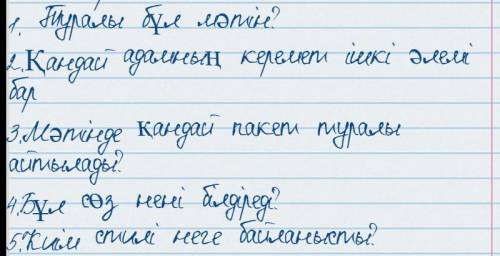 1. Туралы бұл мәтін?
2. Қандай адамның керемет ішкі әлемі
бар
3. Мәтінде қандай пакет туралы
айтылады?
4. Бұл сөз нені білдіреді?
5. Киім стилі неге байланысты?